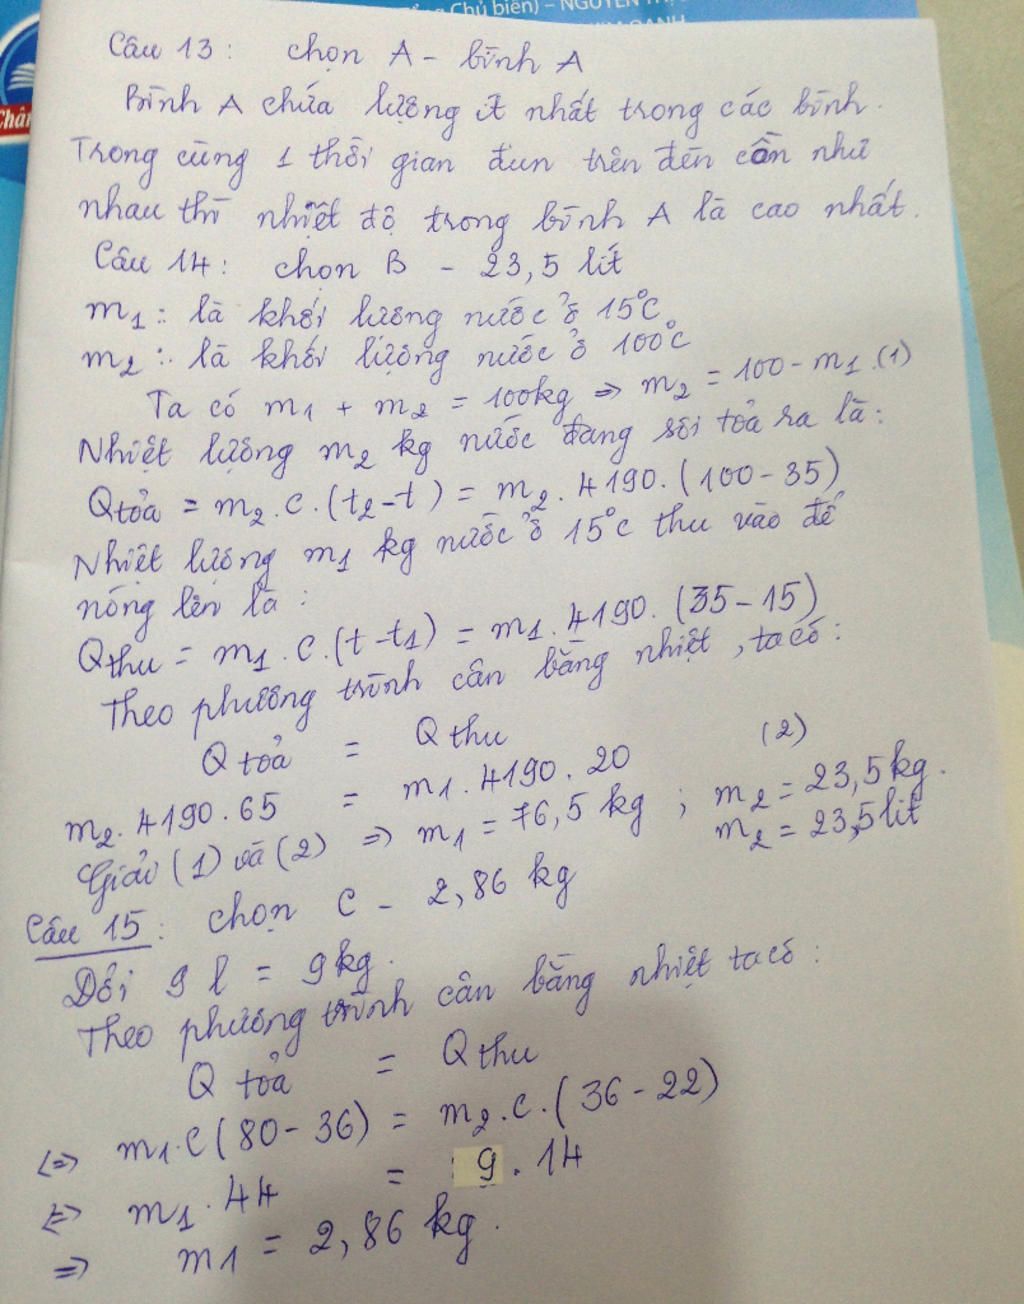 Chủ biên) – NGUYỄN
OANH
Chân
Câu 13 : chọn A - bình A
Bình A chứa lượng ít nhất trong các bình.
Trong cùng 1 thời gian đun trên đèn cồn như
nhau thì nhiệt độ trong bình A là cao nhất.
Câu 14 : chọn B - 23,5 lít
m1 : là khối lượng nước ở 15°C
m2 : là khối lượng nước ở 100°C
Ta có m1 + m2 = 100kg => m2 = 100 - m1 (1)
Nhiệt lượng m2 kg nước đang sôi toả ra là :
Qtỏa = m2 . c . (t2 - t) = m2 . 4190 . (100 - 35)
Nhiệt lượng m1 kg nước ở 15°C thu vào để
nóng lên là :
Qthu = m1 . c . (t - t1) = m1 . 4190 . (35 - 15)
Theo phương trình cân bằng nhiệt, ta có :
Q toả = Q thu (2)
m2 . 4190 . 65 = m1 . 4190 . 20
Giải (1) và (2) => m1 = 76,5 kg ; m2 = 23,5 kg.
m2 = 23,5 lít
Câu 15 : chọn C - 2,86 kg
Đổi 9 l = 9 kg.
Theo phương trình cân bằng nhiệt ta có :
Q toả = Q thu
<=> m1 . C (80 - 36) = m2 . c . (36 - 22)
<=> m1 . 44 = 9 . 14
=> m1 = 2,86 kg.